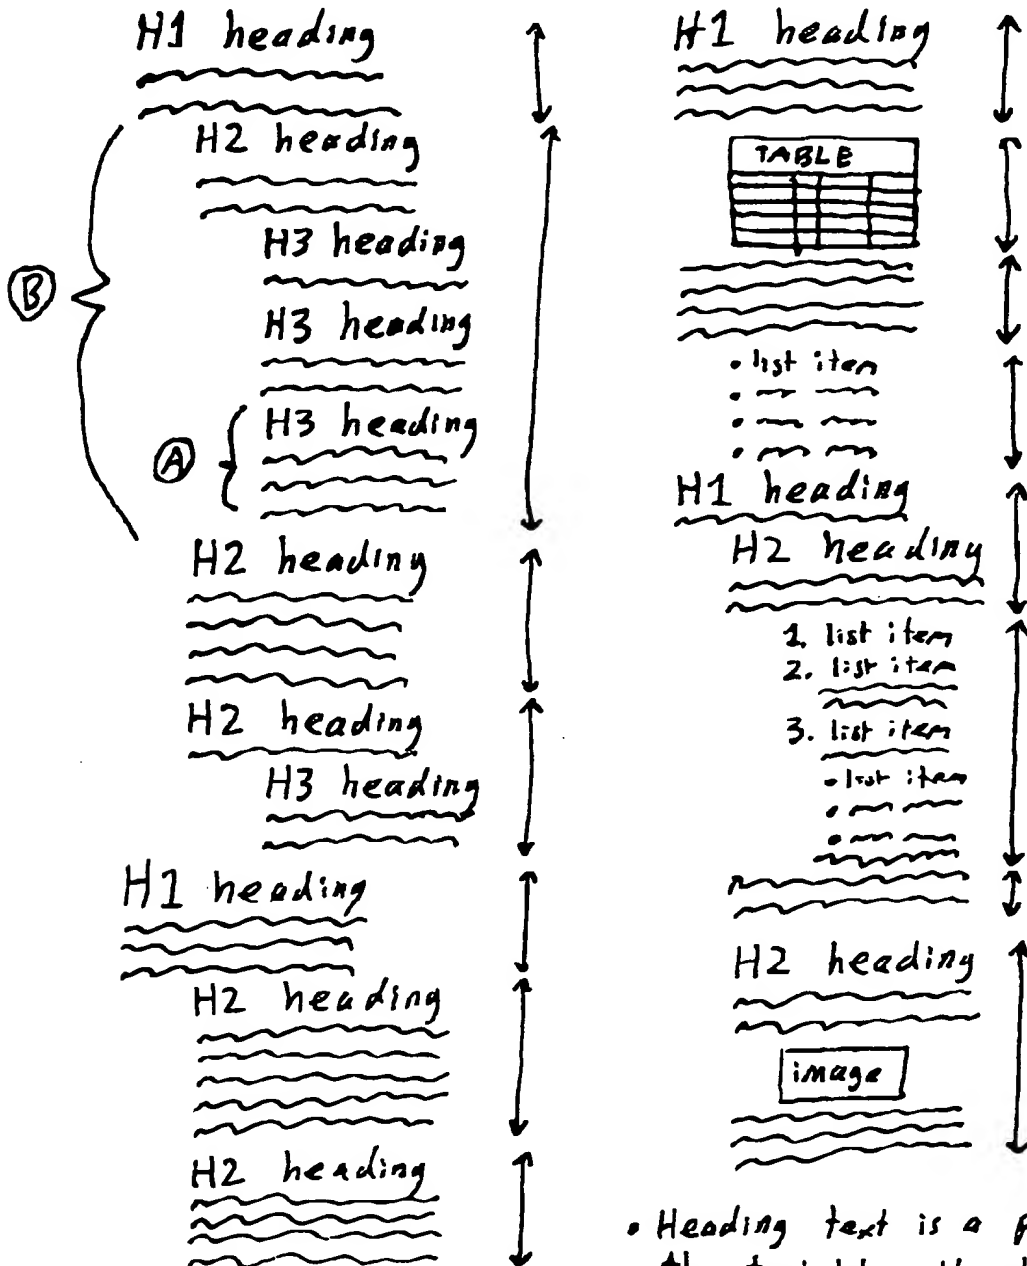 H1 heading
H2 heading
H3 heading
H3 heading
H3 heading
B
A
H2 heading
H2 heading
H3 heading
H1 heading
H2 heading
H2 heading
H1 heading
TABLE
• list item
•
•
•
H1 heading
H2 heading
1. list item
2. list item
3. list item
• list item
•
•
H2 heading
image
• Heading text is a